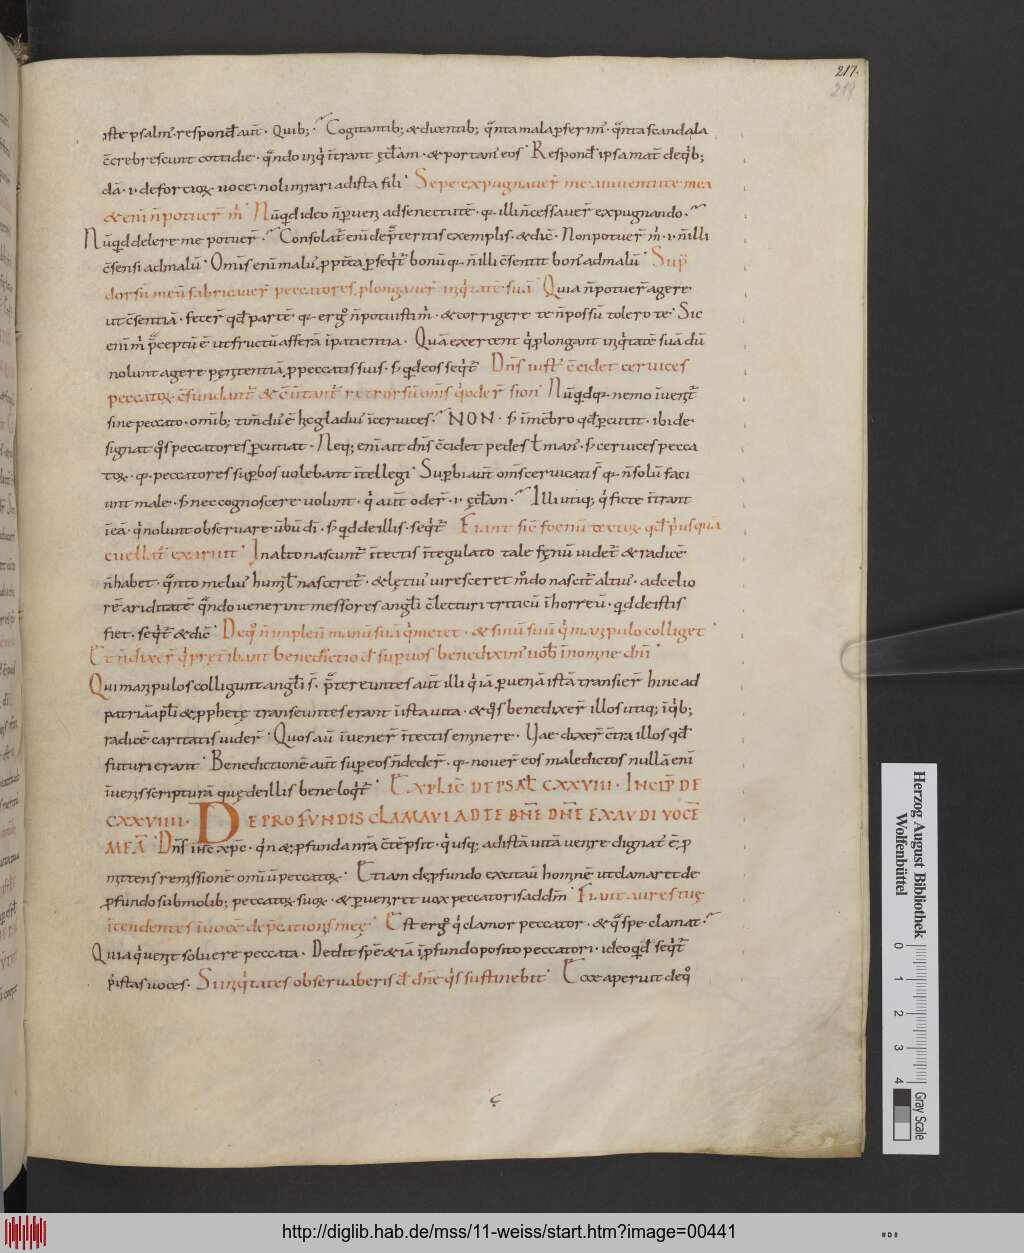 217.
219
iste psalm'. respond̄ aut̄. Quib; · Cogitantib; & dicentib; q̄nta mala pferim'. q̄nta scandala
c̄crebrescunt cottidie. q̄ndo iniq̇ īrant ęcl̄am. & portam' eos. Respond̄ ipsa mat̄ deq̇b;
dā. i. de fortiox uoce. nolimirari adista fili. Sepe expugnauer̄ me a iuuentute mea
& enī n̄ potuer̄ m̄. Nūqd ideo n̄ perueni ad senectutē. q illi n̄ cessauer̄ expugnando.
Nūqd delere me potuer̄. Consolat̄ enī de p̄teritis exemplis. & dic̄. Non potuer̄ m̄. i. n̄ illi
c̄sensi ad malū. Om̄is enī malu' ppt̄ea pseq̄t̄ bonū q n̄ illi c̄sentit bon' ad malū. Sup̄
dorsū meū fabricauer̄ peccatores. plongauer̄ iniq̇tatē suā. Quia n̄ potuer̄ agere
ut c̄sentiā. fecer̄ qd̄ partē. q ergo n̄ potuistim̄. & corrigere te n̄ possū tolero te. Sic
enī m̄ p̄ceptū ē ut fructū afferā ī patientia. Quā exercent q̇ plongant iniq̇tatē suā dū
nolunt agere pęnitentiā, p peccatis suis. s̄ qd eos seq̄t̄. Dn̄s iust' c̄cidet ceruices
peccatox c̄fundant̄ & c̄ūtant̄ retrorsū om̄s q̇ oder̄ sion. Nūqd q nemo īuenit̄
sine peccato. omīb; tīnd' ē hic gladiu' ī ceruices. NON. s̄ ī mēbro qd̄ pcutit. ibi de
signat q̊s peccatores pcutiat. Neq; enī ait dn̄s c̄cidet pedes t̄ man'. s̄ ceruices pecca
tox. q peccatores supbos uolebant ītellegi. Supbi aut̄ om̄s ceruicati s̄. q n̄ solū faci
unt male. s̄ nec cognoscere uolunt. q̇ aut̄ oder̄. i. ęcl̄am. Illi utiq; q̇ ficte ītrant
ī eā. q̇ nolunt obseruare ūbū dī. s̄ qd de illis. seq̄t̄. Fiant sic̄ foenū tectox. qd̄ ṗusquā
euellat̄ exaruit. In alto nascunt̄ ī tectis ī tegulato tale fęnū uidet̄ & radicē
n̄ habet. q̄nto meliu' humil̄ nasceret̄. & lętiu' uiresceret m̊do nascit̄ altiu'. ad celio
rē ariditatē q̄ndo uenerunt messores angl̄i c̄lecturi triticū ī horreū. qd de istis
fiet. seq̄t̄ & dic̄. De qo n̄ impleuī manū suā q̇ metet. & sinū suū q̇ manipulo colliget.
Et n̄ dixer̄ q̇ pręt̄ibant benedic̄tio d̄ sup uos benediximi' uob̄ ī nomine dn̄i.
Qui manipulos colligunt angl̄i s̄. p̄tereuntes aut̄ illi q̇ iā p uenā istā transier̄ hinc ad
patriā ap̄l̄i & pphetę transeuntes erant ī ista uita. & q̊s benedixer̄ illos utiq; ī q̇b;
radicē caritatis uider̄. Quos aū īuener̄ ī tectis eminere. Hae dixer̄ c̄tra illos qd̄
futuri erant. Benedictionē aut̄ sup eos n̄ deder̄. q nouer̄ eos maledictos nullā enī
īuenis scripturā quę de illis bene loq̄t̄. EXPLIC̄ DE PSAL̄ CXXVIII. INCIP̄ DE
CXXVIIII. DE PROFUNDIS CLAMAVI AD TE DN̄E DN̄E EXAVDI VOCĒ
MEĀ. Dn̄s ih̄c xp̄c. q̇ n̄ & pfunda nr̄a c̄tēpsit. q̇ usq; ad istā uitā uenire dignat' ē. p
mittens remissionē omī ū peccatox. Etiam de pfundo excitauī hominē ut clamaret de
pfundo sub molib; peccatox suox. & p ueniret uox peccatoris ad dm̄. Fiant aures tuę
ī tendentes ī uocē de pcationis męę. Est ergo q̇ clamor peccator. & q̊ spe clamat.
Quia q̇ uenit soluere peccata. Dedit spē & iā ī pfundo posito peccatori. ideo qd̄ seq̄t̄
p̄ istas uoces. Si iniq̇tates obseruaberis d̄ dn̄e q̇s sustinebit. Ecce aperuit de qo
Herzog August Bibliothek
Wolfenbüttel
0 1 2 3 4
Gray Scale
http://diglib.hab.de/mss/11-weiss/start.htm?image=00441